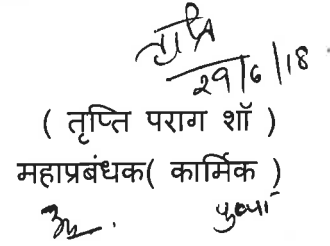 तृप्ति
29/6/18
( तृप्ति पराग शॉ )
महाप्रबंधक( कार्मिक )